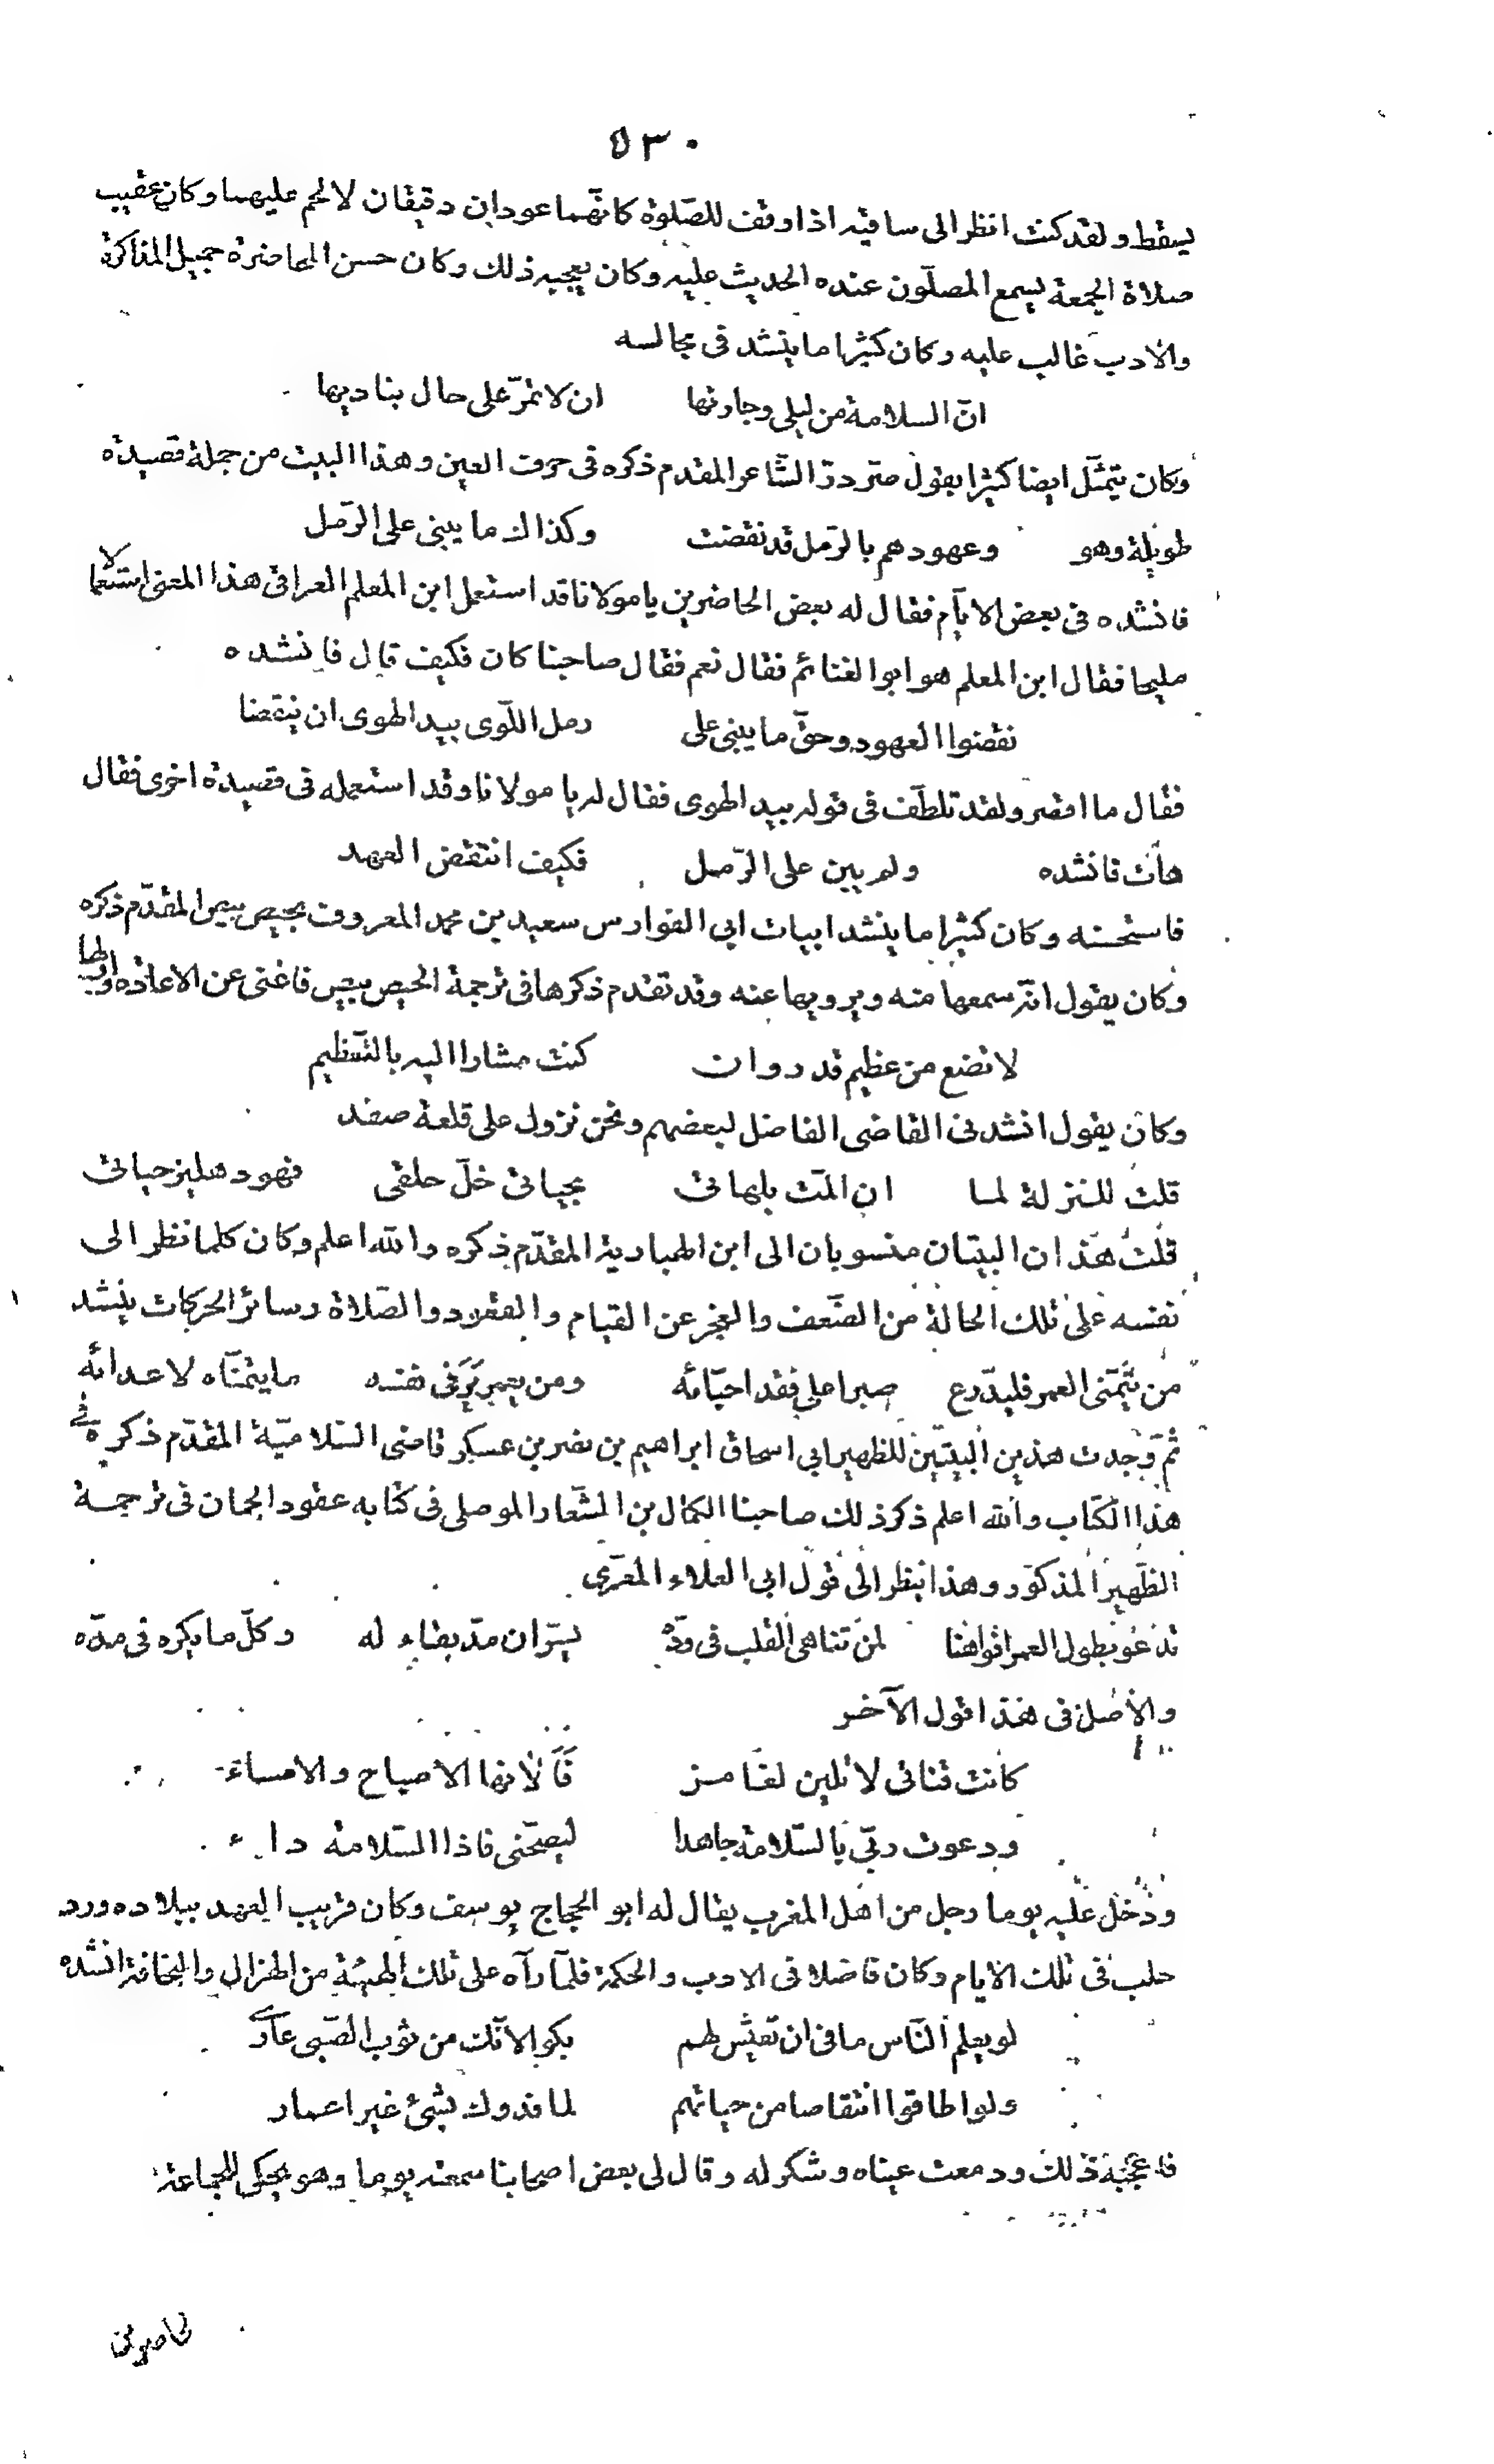 ٥٣٠
يسقط ولقد كنت انظر الى ساقيه اذا وقف للصّلوة كانّهما عودان دقيقان لا لحم عليهما وكان عقيب
صلاة الجمعة يسمع المصلّون عنده الحديث عليه وكان يعجبه ذلك وكان حسن المحاضرة جميل المذاكرة
والادب غالب عليه وكان كثيرا ما ينشد فى مجالسه
انّ السلامة من ليلى وجارتها ان لا تمرّ على حال بناديها
وكان يتمثّل ايضا كثيرا بقول صرّدرّ الشّاعر المقدم ذكره فى حرف العين وهذا البيت من جملة قصيدة
طويلة وهو وعهودهم بالرّمل قد نقضت وكذاك ما يبنى على الرّمل
فانشده فى بعض الايّام فقال له بعض الحاضرين يا مولانا قد استعمل ابن المعلم العراقى هذا المعنى استعمالا
مليحا فقال ابن المعلم هو ابو الغنائم فقال نعم فقال صاحبنا كان فكيف قال فانشده
نقضوا العهود وحقّ ما يبنى على رمل اللّوى بيد الهوى ان ينقضا
فقال ما اقصر ولقد تلطّف فى قوله بيد الهوى فقال له يا مولانا وقد استعمله فى قصيدة اخرى فقال
هات فانشده ولم يبن على الرّمل فكيف انتقض العهد
فاستحسنه وكان كثيرا ما ينشد ابيات ابى الفوارس سعيد بن محمد المعروف بحيص بيص المقدّم ذكره
وكان يقول انّه سمعها منه ويرويها عنه وقد تقدم ذكرها فى ترجمة الحيص بيص فاغنى عن الاعاذه واولها
لا تضع من عظيم قدر وان كنت مشارا اليه بالتّعظيم
وكان يقول انشدنى القاضى الفاضل لبعضهم ونحن نزول على قلعة صفد
قلت للنزلة لما ان المّت بلهاتى بحياتى خلّ حلقى فهو دهليز حياتى
قلت هذان البيتان منسوبان الى ابن الهبارية المقدّم ذكره والله اعلم وكان كلما نظر الى
نفسه على تلك الحالة من الضّعف والعجز عن القيام والقعود والصّلاة وسائر الحركات ينشد
من يتمنّى العمر فليدّرع صبرا على فقد احبّائه ومن يعمر يرَ فى نفسه ما يتمنّاه لاعدائه
ثمّ وجدت هذين البيتين للظهير ابى اسحاق ابراهيم بن نصر بن عسكر قاضى السّلاميّة المقدّم ذكره فى
هذا الكتاب والله اعلم ذكر ذلك صاحبنا الكمال بن الشّعار الموصلى فى كتابه عقود الجمان فى ترجمة
الظّهير المذكور وهذا ينظر الى قول ابى العلاء المعرّى
تدعو بطول العمر افواهنا لمن تناهى القلب فى ودّه يسرّ ان مدّ بقاء له وكلّ ما يكره فى مدّه
والاصل فى هذا قول الآخر
كانت قناتى لا تلين لغامز فَأَلانها الاصباح والامساء
ودعوت ربّى بالسّلامة جاهدا ليصحّنى فاذا السّلامة داء
ودخل عليه يوما رجل من اهل المغرب يقال له ابو الحجاج يوسف وكان قريب العهد ببلاده ورد
حلب فى تلك الايام وكان فاضلا فى الادب والحكمة فلمّا رآه على تلك الهيئة من الهزال والنحافة انشده
لو يعلم النّاس ما فى ان تعيش لهم بكوا لانّك من ثوب الصّبى عارى
ولو اطاقوا انتقاصا من حياتهم لما فدوك بشئ غير اعمار
فاعجبه ذلك ودمعت عيناه وشكر له وقال لى بعض اصحابنا سمعته يوما وهو يحكى للجماعة